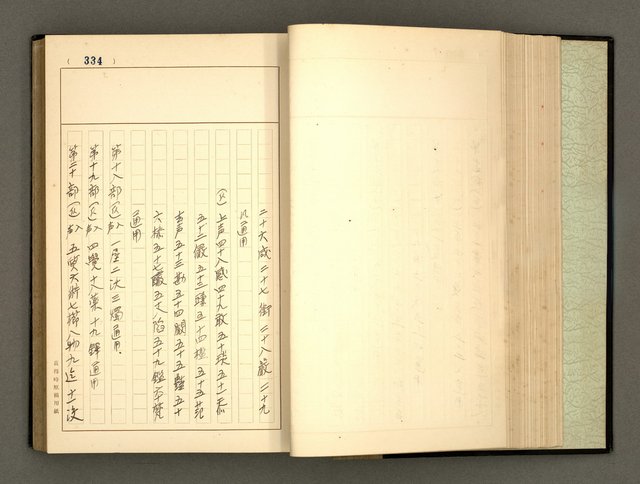 ( 334 )
二十六咸二十七銜二十八嚴二十九
凡通用
(仄) 上声四十八感四十九敢五十琰五十一忝
五十二儼五十三豏五十四檻五十五范
去声五十三勘五十四闞五十五豔五十
六㮇五十七釅五十八陷五十九鑑六十梵
通用
第十八部(仄)入声 一屋二沃三燭通用.
第十九部(仄)入声 四覺十八藥十九鐸通用
第二十部(仄)入声 五質六術七櫛八勿九迄十一没
黃得時原稿用紙